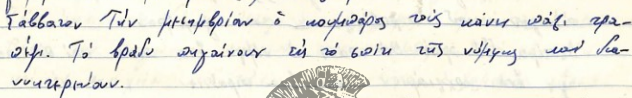 Σάββατον Τήν μεσημβρίαν ὁ κουμπάρος τούς κάνει πάλι τρα-
πέζι. Τό βράδυ πηγαίνουν εἰς τό σπίτι τῆς νύμφης καί δια-
νυκτερεύουν.